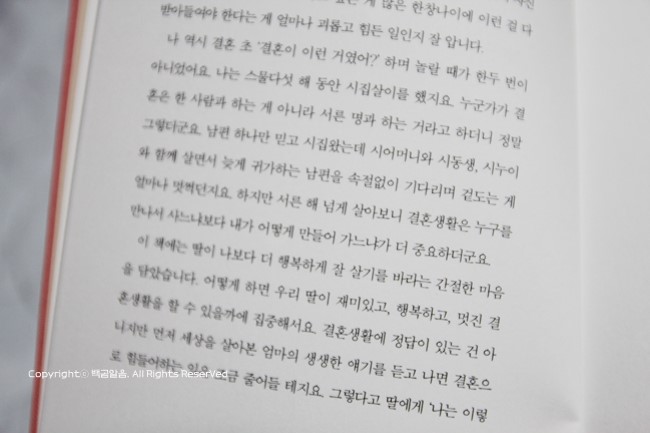 많은 한창나이에 이런 걸 다
받아들여야 한다는 게 얼마나 괴롭고 힘든 일인지 잘 압니다.
나 역시 결혼 초 '결혼이 이런 거였어?' 하며 놀랄 때가 한두 번이
아니었어요. 나는 스물다섯 해 동안 시집살이를 했지요. 누군가가 결
혼은 한 사람과 하는 게 아니라 서른 명과 하는 거라고 하더니 정말
그렇더군요. 남편 하나만 믿고 시집왔는데 시어머니와 시동생, 시누이
와 함께 살면서 늦게 귀가하는 남편을 속절없이 기다리며 겉도는 게
얼마나 멋쩍던지요. 하지만 서른 해 넘게 살아보니 결혼생활은 누구를
만나서 사느냐보다 내가 어떻게 만들어 가느냐가 더 중요하더군요.
이 책에는 딸이 나보다 더 행복하게 잘 살기를 바라는 간절한 마음
을 담았습니다. 어떻게 하면 우리 딸이 재미있고, 행복하고, 멋진 결
혼생활을 할 수 있을까에 집중해서요. 결혼생활에 정답이 있는 건 아
니지만 먼저 세상을 살아본 엄마의 생생한 얘기를 듣고 나면 결혼으
로 힘들어하는 일은 조금 줄어들 테지요. 그렇다고 딸에게 '나는 이렇
Copyright ⓒ 백곰맑음. All Rights Reserved